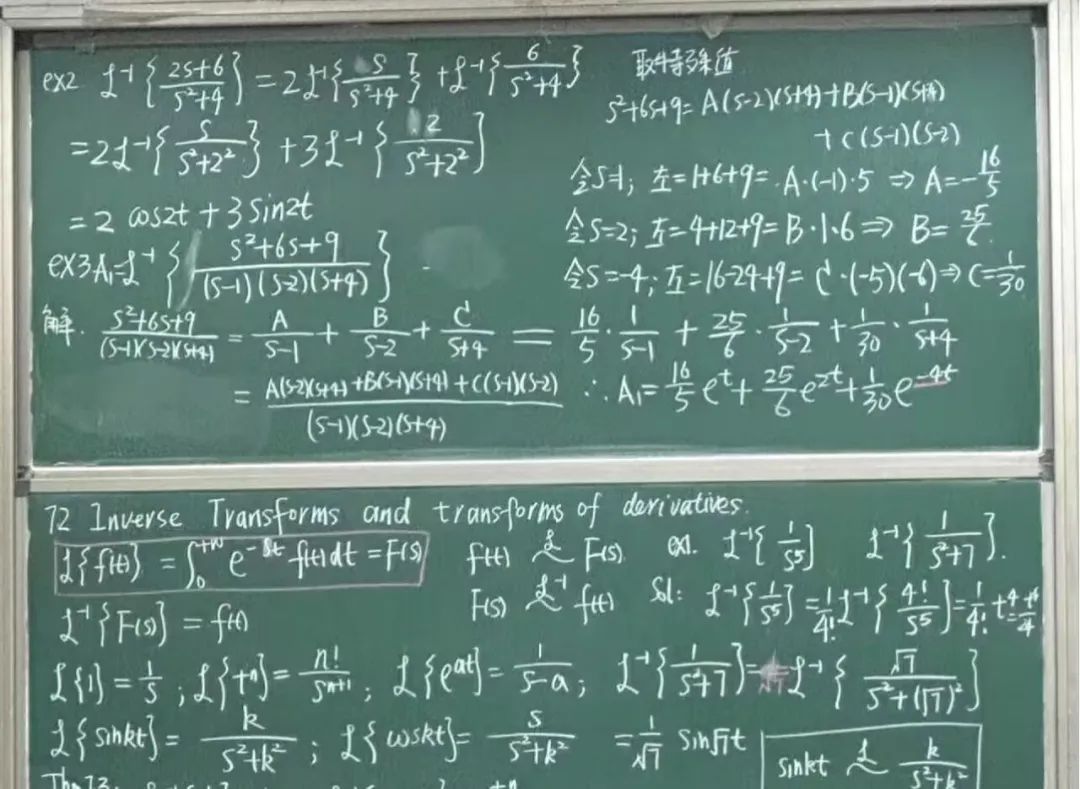 ex2 ℒ⁻¹{(2s+6)/(s²+4)} = 2ℒ⁻¹{s/(s²+4)} + ℒ⁻¹{6/(s²+4)}
= 2ℒ⁻¹{s/(s²+2²)} + 3ℒ⁻¹{2/(s²+2²)}
= 2 cos2t + 3 sin2t
ex3 A₁ = ℒ⁻¹{(s²+6s+9)/((s-1)(s-2)(s+4))}
解. (s²+6s+9)/((s-1)(s-2)(s+4)) = A/(s-1) + B/(s-2) + C/(s+4)
= (A(s-2)(s+4)+B(s-1)(s+4)+C(s-1)(s-2))/((s-1)(s-2)(s+4))
取特殊值
s²+6s+9 = A(s-2)(s+4)+B(s-1)(s+4)
+C(s-1)(s-2)
令s=1; 左=1+6+9= A·(-1)·5 ⇒ A=-16/5
令s=2; 左=4+12+9= B·1·6 ⇒ B=25/6
令s=-4; 左=16-24+9= C·(-5)(-6) ⇒ C=1/30
= 16/5 · 1/(s-1) + 25/6 · 1/(s-2) + 1/30 · 1/(s+4)
∴ A₁= 16/5 e^t + 25/6 e^{2t} + 1/30 e^{-4t}
72 Inverse Transforms and transforms of derivatives.
ℒ{f(t)} = ∫₀^{+∞} e^{-st} f(t)dt = F(s)
ℒ⁻¹{F(s)} = f(t)
f(t) ℒ~ F(s)
F(s) ℒ⁻¹~ f(t)
ex1. ℒ⁻¹{1/s⁵} ℒ⁻¹{1/(s²+7)}.
Sol: ℒ⁻¹{1/s⁵} = 1/4! ℒ⁻¹{4!/s⁵} = 1/4! t⁴ = t⁴/4!
ℒ{1} = 1/s ; ℒ{tⁿ} = n!/s^{n+1} ; ℒ{e^{at}} = 1/(s-a) ;
ℒ⁻¹{1/(s²+7)} = 1/√7 ℒ⁻¹{√7/(s²+(√7)²)}
ℒ{sinkt} = k/(s²+k²) ; ℒ{coskt} = s/(s²+k²)
= 1/√7 sin√7t
sinkt ℒ~ k/(s²+k²)